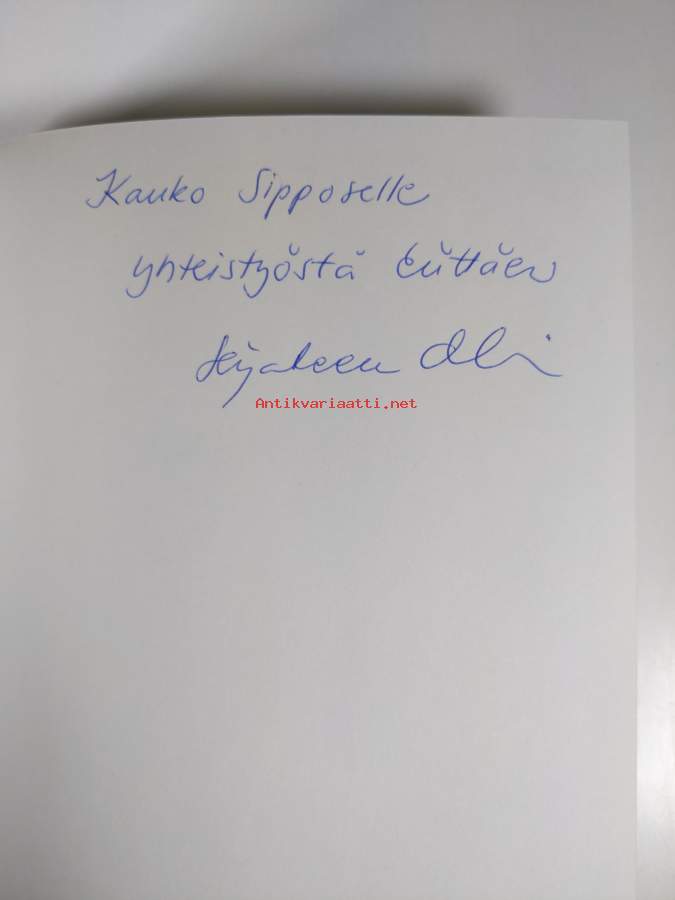 Kauko Sipposelle
yhteistyöstä kiittäen
Antikvariaatti.net